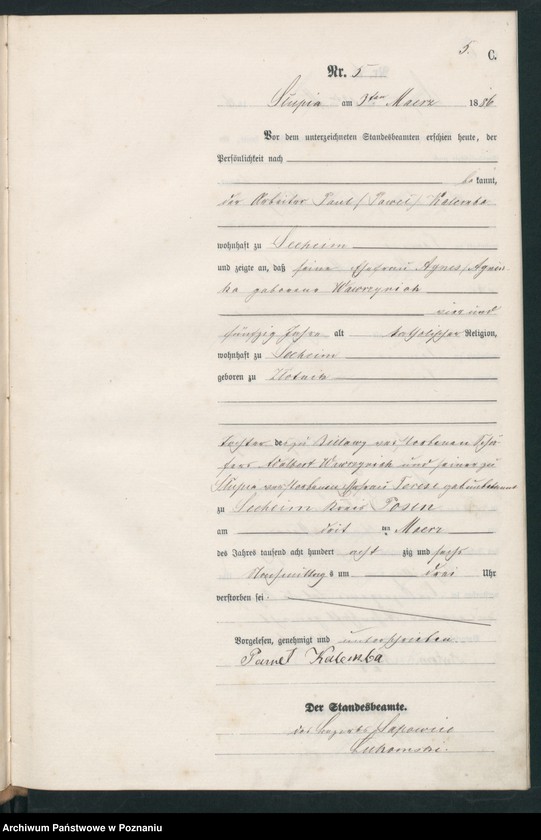 5.
C.
Nr. 5
Slupia am 3ten Maerz 1886
Vor dem unterzeichneten Standesbeamten erschien heute, der
Persönlichkeit nach
be kannt,
der Arbeiter Paul /Pawel/ Kalemba
wohnhaft zu Seeheim
und zeigte an, daß seine Ehefrau Agnes/Agniesz
ka geborene Wawrzyniak
vier und
fünfzig Jahre alt katholischer Religion,
wohnhaft zu Seeheim
geboren zu Kotnik
tochter des zu verstorbenen
Adalbert Wawrzyniak und seiner zu
Slupia verstorbenen Ehefrau Terese geb. unbekannt
zu Seeheim Kreis Posen
am drit ten Maerz
des Jahres tausend acht hundert acht zig und sechs
Nachmittag s um drei Uhr
verstorben sei.
Vorgelesen, genehmigt und unterschrieben.
Paweł Kalemba
Der Standesbeamte.
Lukomski.
Archiwum Państwowe w Poznaniu